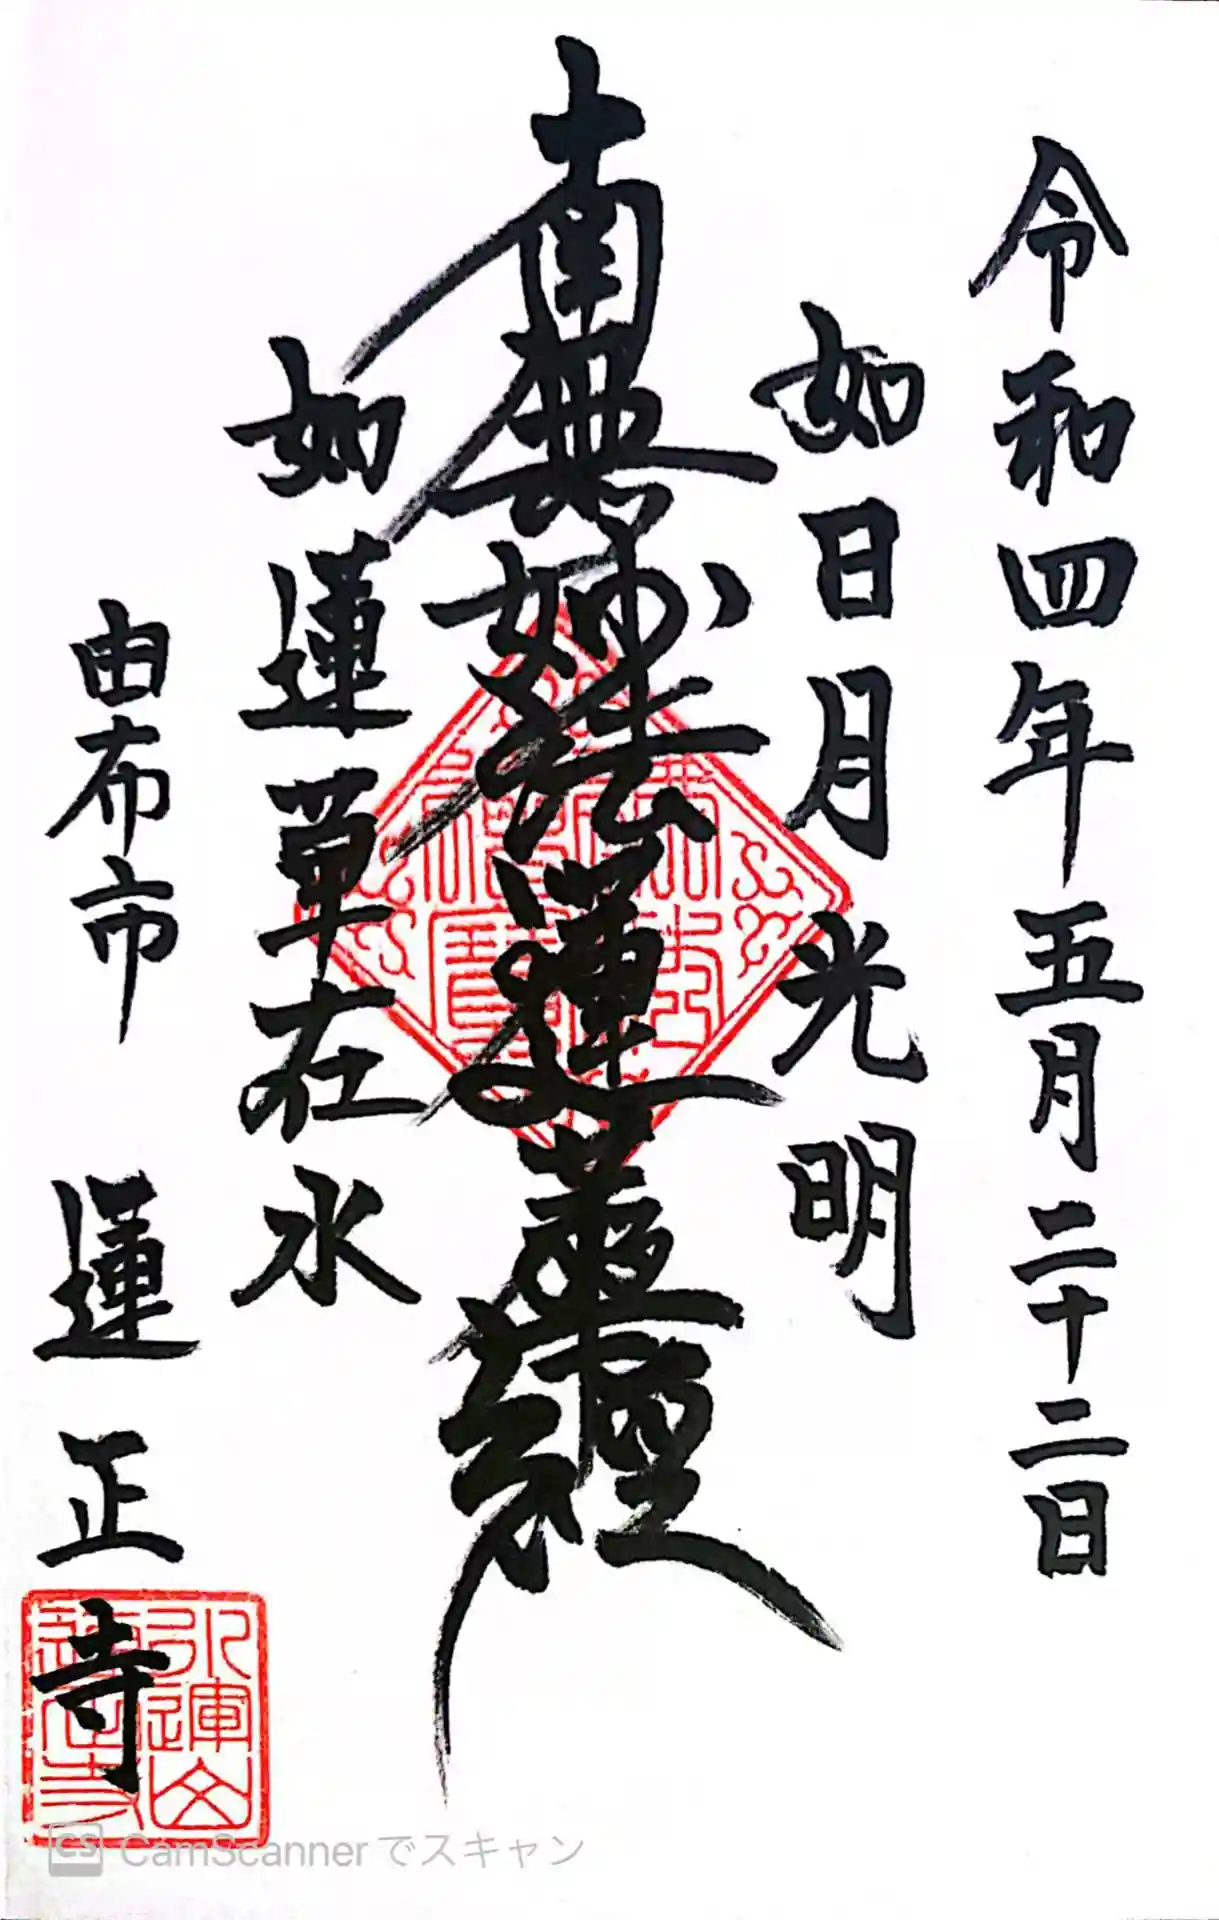 令和四年五月二十二日
如日月光明
南無妙法蓮華經
如蓮華在水
由布市 蓮正寺
CS CamScannerでスキャン